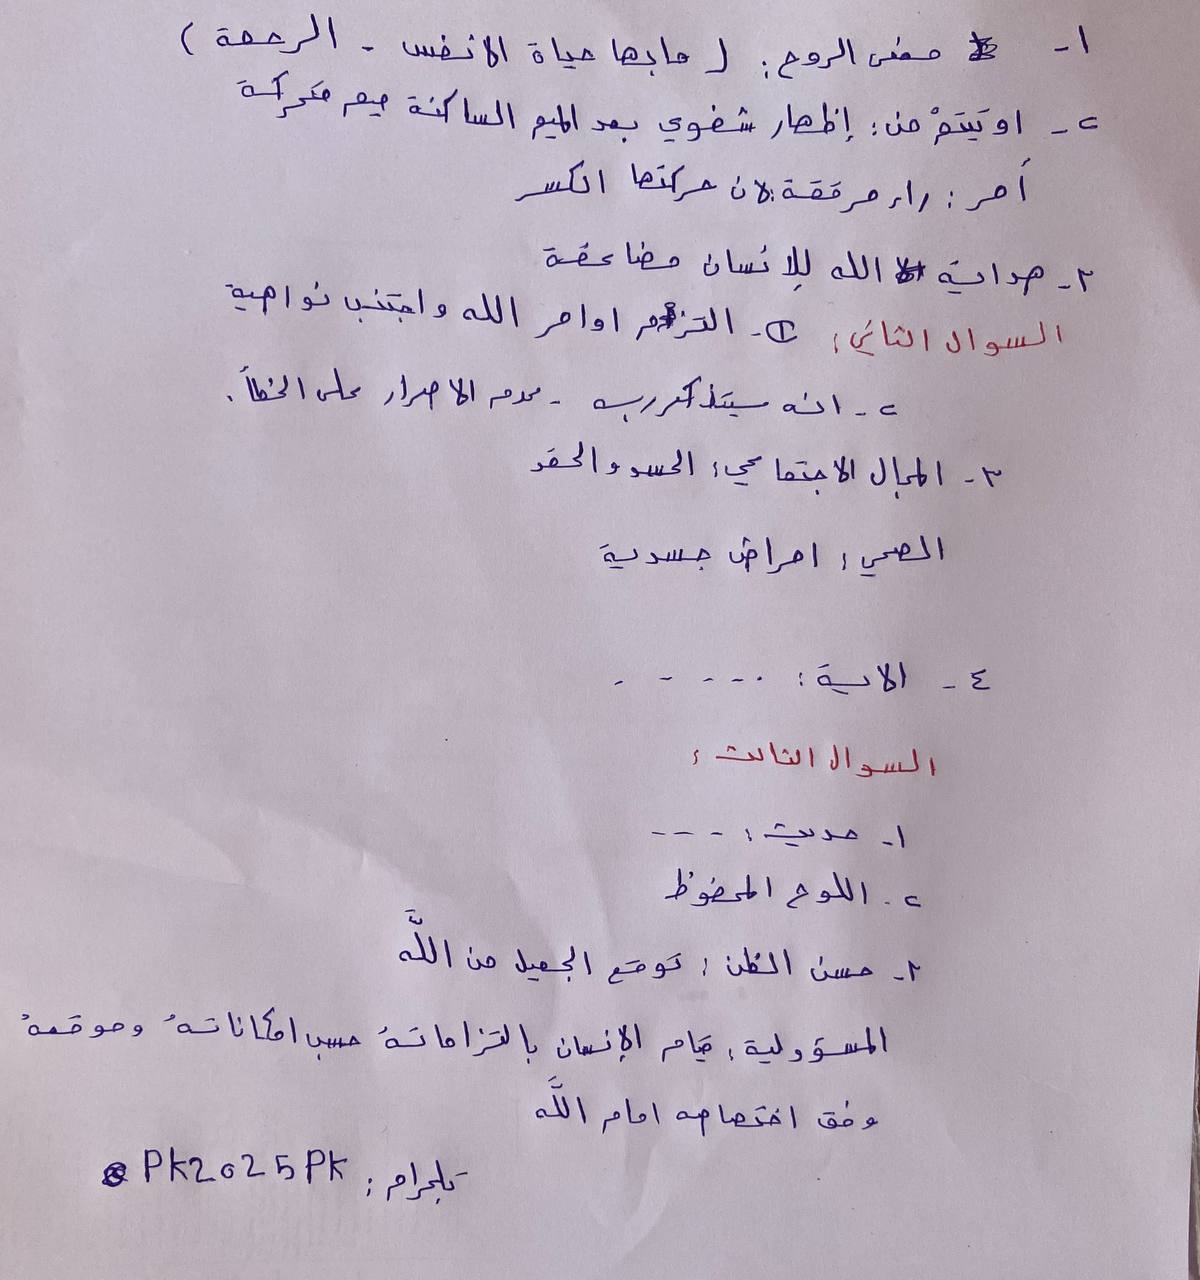 ١- معنى الروح: ( مابها حياة الانفس - الرحمة )
٢- اوتيتمْ من: إظهار شفوي بعد الميم الساكنة ميم متحركة
أمر: راء مرققة: لان حركتها الكسر
٣- هداية الله للإنسان مضاعفة
السوال الثاني: ١- التزم اوامر الله واجتنب نواهية
٢- انه سيتذكر ربه - عدم الاصرار على الخطأ.
٣- المجال الاجتماعي: الحسد والحقد
الصحي: امراض جسدية
٤- الاية: . . . . . .
السوال الثالث:
١- حديث: - - - -
٢- اللوح المحفوظ
٣- حسن الظن: توقع الجميل من اللَّه
المسؤولية: قيام الإنسان بالتزاماتهُ حسب امكاناتهُ وموقعهُ
وفق اختصاصه امام اللَّه
تلجرام: PK2025PK